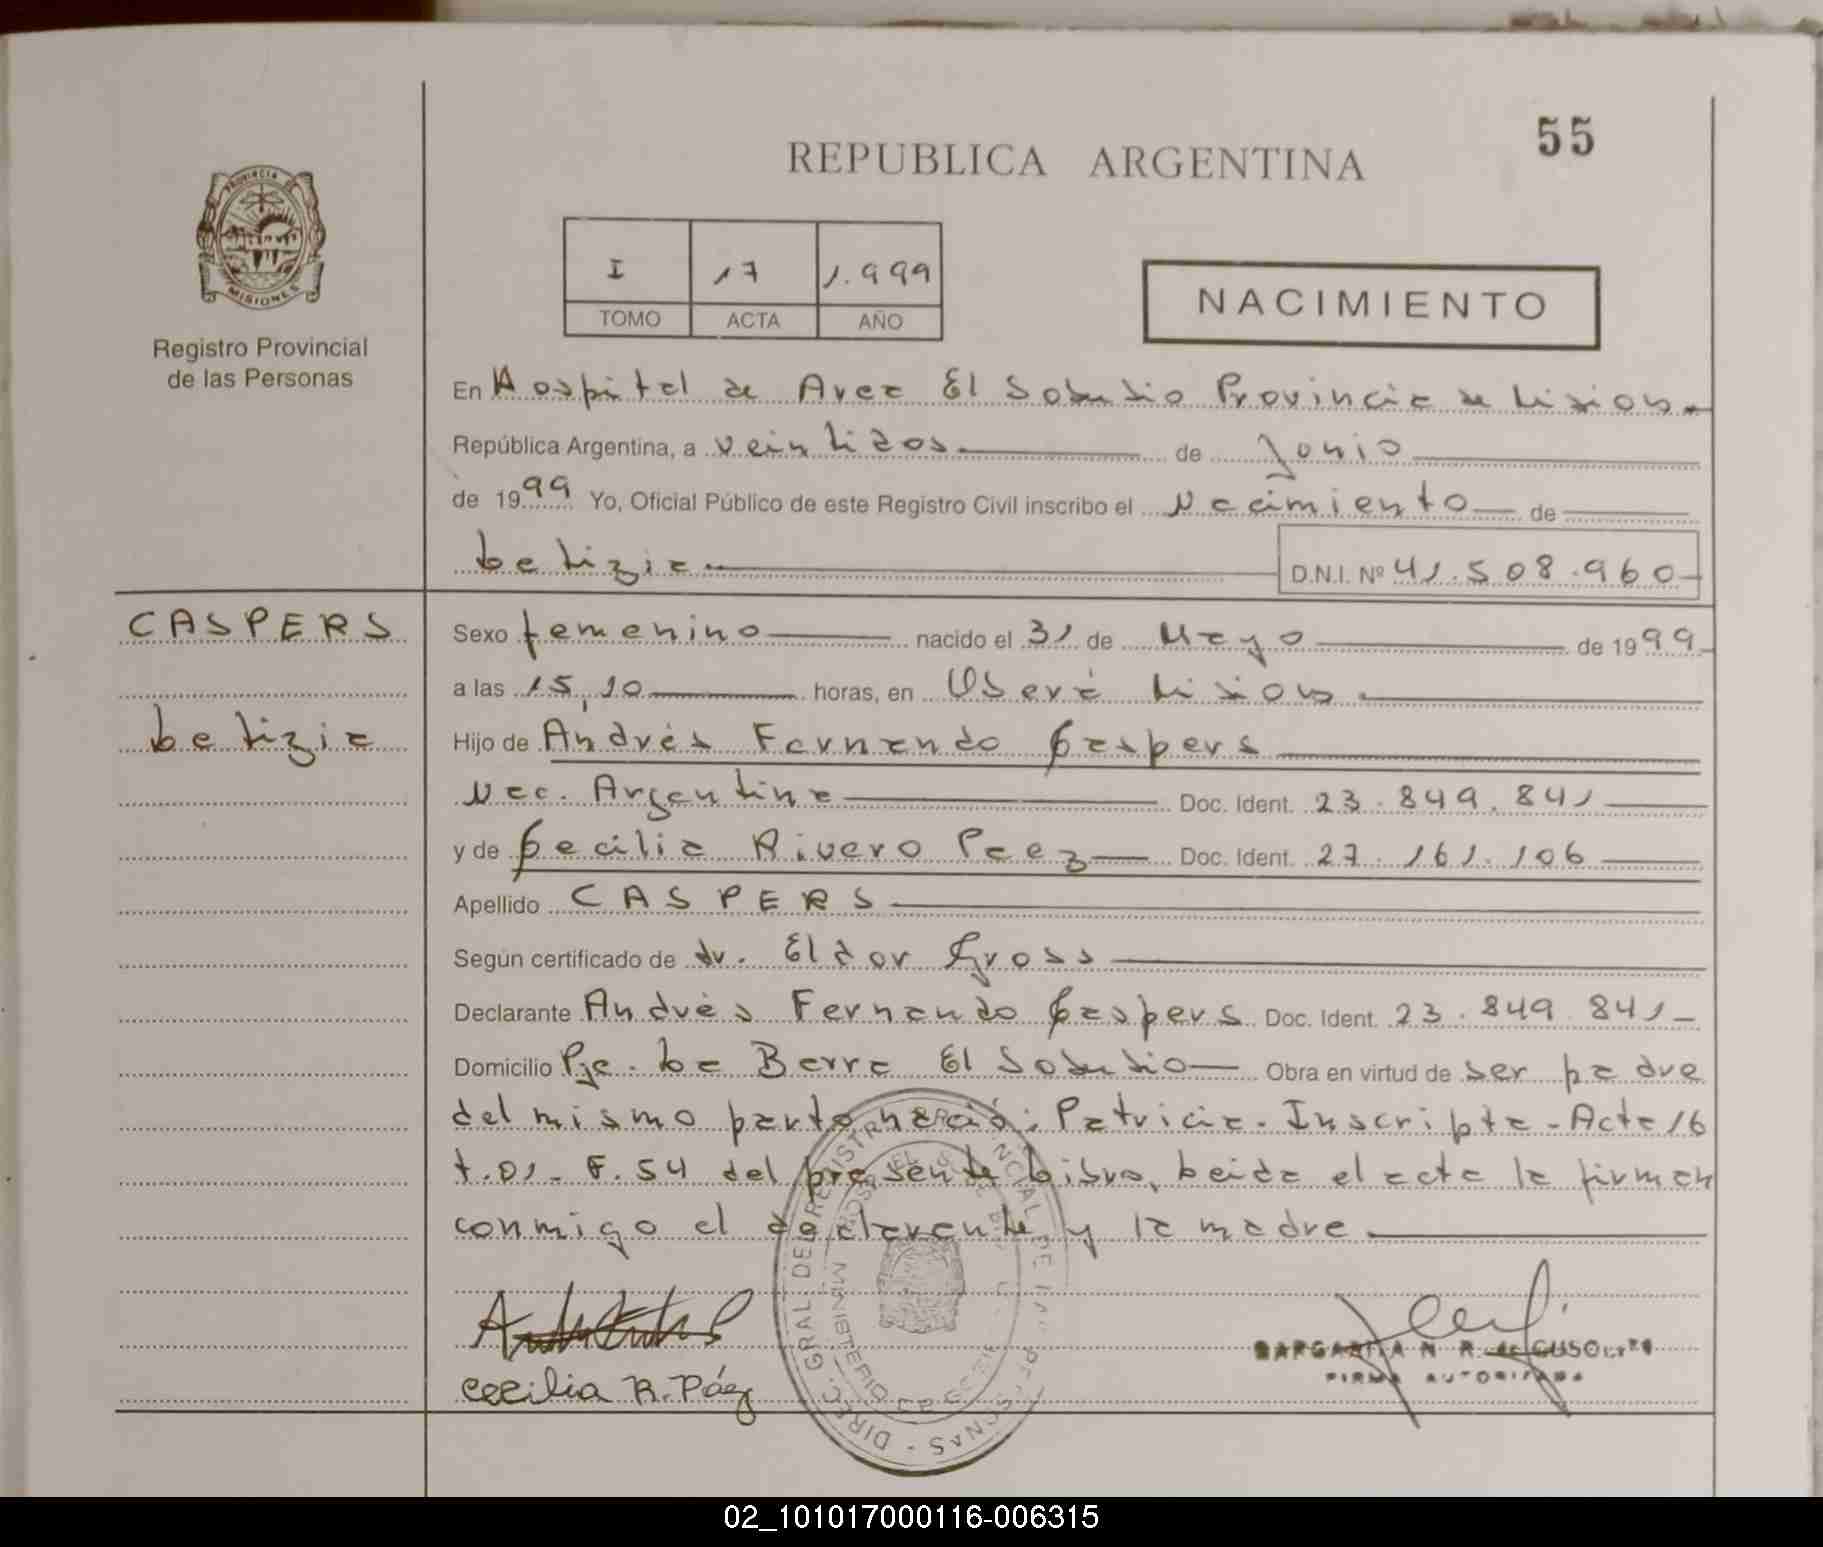 55
REPUBLICA ARGENTINA
PROVINCIA DE
MISIONES
Registro Provincial
de las Personas
I 17 1.999
TOMO ACTA AÑO
NACIMIENTO
En Hospital de Area El Soberbio Provincia de Misiones
República Argentina, a veintidos de Junio
de 1999 Yo, Oficial Público de este Registro Civil inscribo el Nacimiento de
Letizia D.N.I. Nº 41.508.960
CASPERS
Letizia
Sexo femenino nacido el 31 de Mayo de 1999
a las 15,10 horas, en Oberá Misiones
Hijo de Andrés Fernando Caspers
Nac. Argentina Doc. Ident. 23.849.841
y de Cecilia Rivero Paez Doc. Ident. 27.161.106
Apellido CASPERS
Según certificado de dr. Eldor Gross
Declarante Andrés Fernando Caspers Doc. Ident. 23.849.841
Domicilio Pje. La Barra El Soberbio Obra en virtud de ser padre
del mismo parto nació: Patricia. Inscripta - Acta 16
t.01 - F.54 del presente Libro, Leida el acta la firman
conmigo el declarante y la madre
Cecilia R. Páez
MARGARITA N. R. de
FIRMA AUTORIZADA
DIREC. GRAL DEL REGISTRO PROVINCIAL DE LAS PERSONAS
MINISTERIO DE
02_101017000116-006315